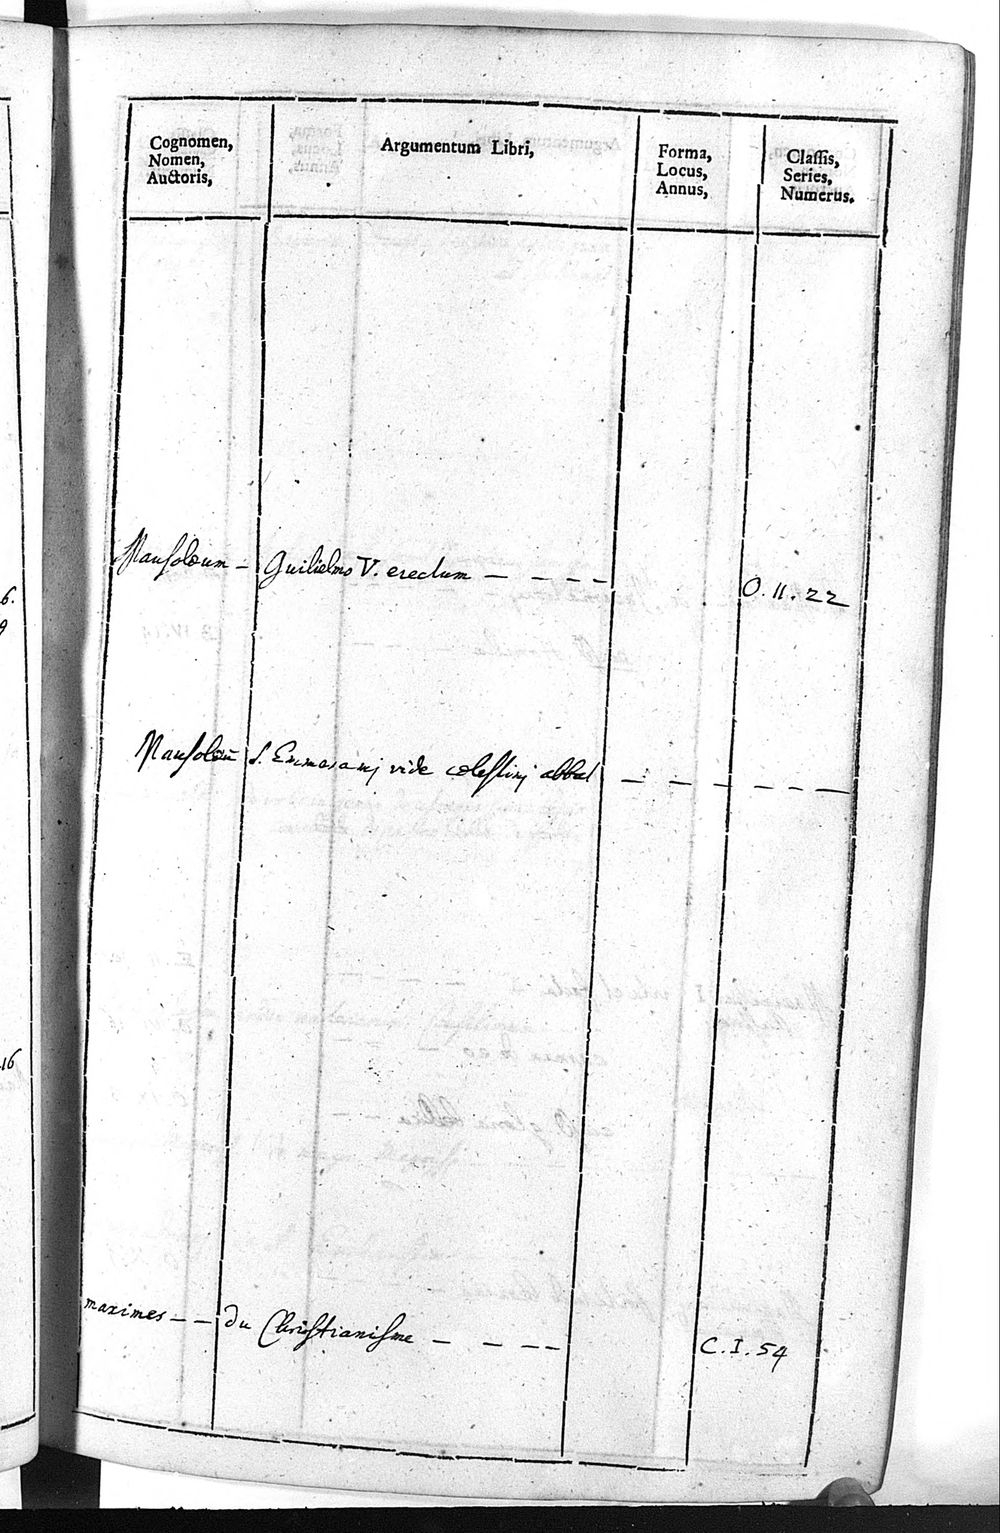 Cognomen,
Nomen,
Auctoris,
Argumentum Libri,
Forma,
Locus,
Annus,
Classis,
Series,
Numerus.
6.
9
Mausolæum - Guilielmo V. erectum - - - - - O. II. 22
Mausolæū S. Emmerami vide cœlestini abbat - - - - - - -
16
maximes - - du Christianisme - - - - C. I. 54